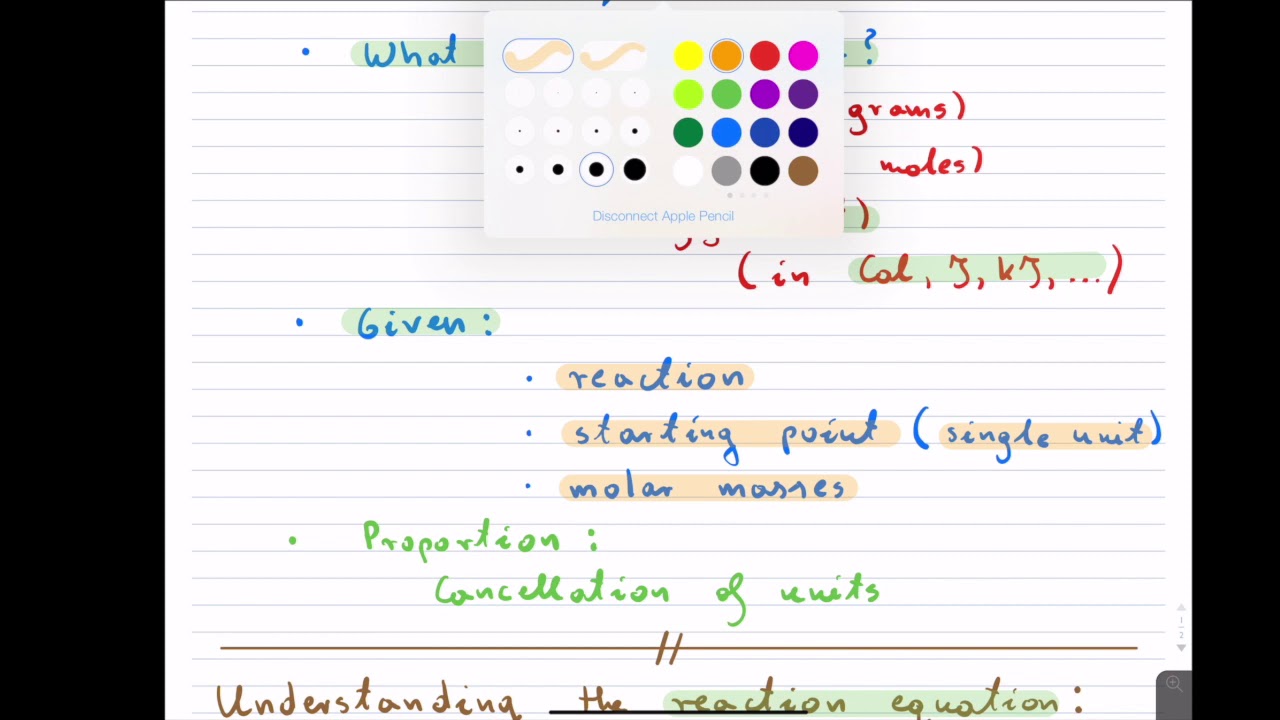 • What ?
grams)
moles)
)
(in Cal, J, kJ, ...)
Disconnect Apple Pencil
• Given:
• reaction
• starting point (single unit)
• molar masses
• Proportion:
Cancellation of units
//
Understanding the reaction equation:
1
2